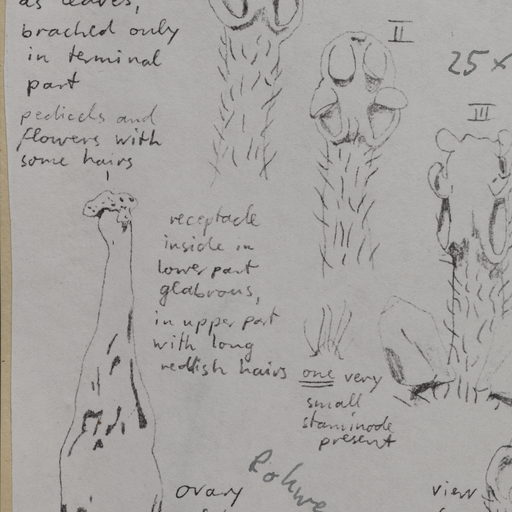 as leaves,
brached only
in terminal
part
pedicels and
flowers with
some hairs
II
25x
III
receptacle
inside in
lower part
glabrous,
in upper part
with long
reddish hairs
one very
small
staminode
present
Rohwe
ovary
view